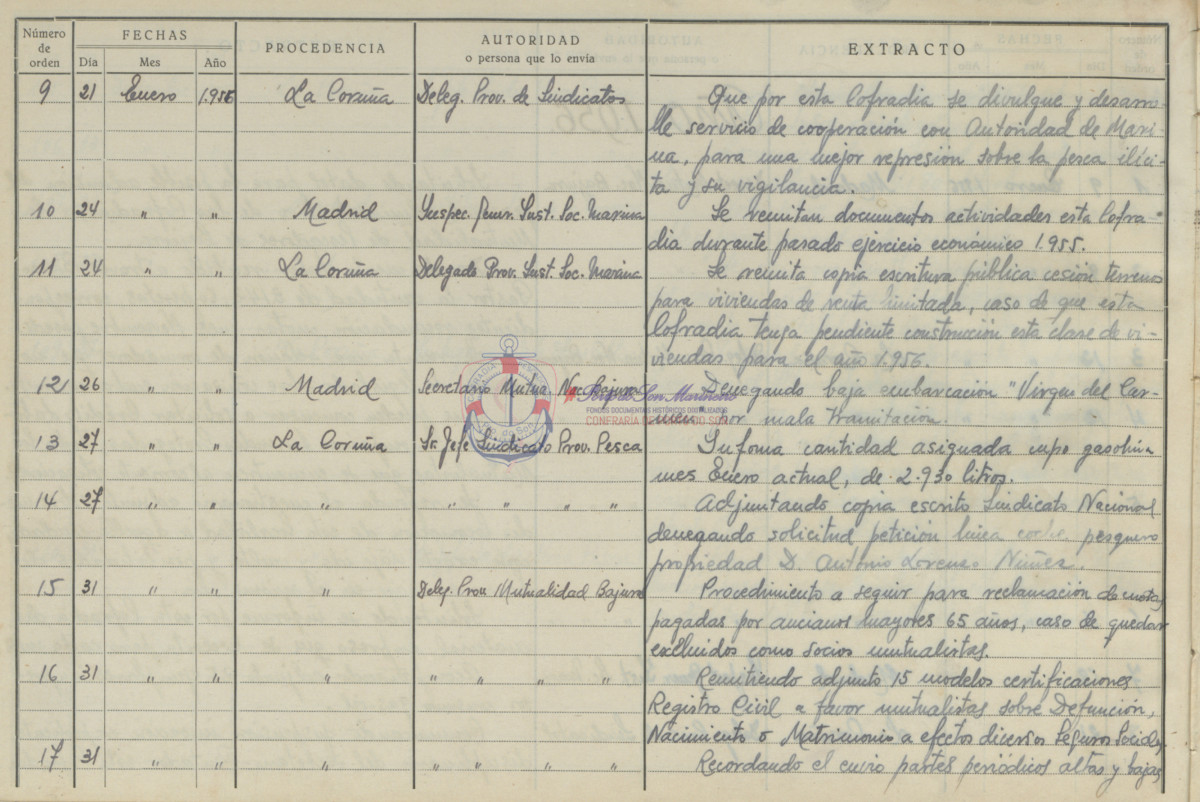 Número de orden FECHAS PROCEDENCIA AUTORIDAD o persona que lo envía EXTRACTO
Día Mes Año
9 21 Enero 1.956 La Coruña Deleg. Prov. de Sindicatos Que por esta Cofradia se divulgue y desarro-
lle servicio de cooperación con Autoridad de Mari-
na, para una mejor represión sobre la pesca ilíci-
ta y su vigilancia.
10 24 " " Madrid Inspec. Sust. Soc. Marina Se remitan documentos actividades esta Cofra-
dia durante pasado ejercicio económico 1.955.
11 24 " " La Coruña Delegado Prov. Sust. Soc. Marina Se remita copia escritura pública cesión terrenos
para viviendas de renta limitada, caso de que esta
Cofradia tenga pendiente construción esta clase de vi-
viendas para el año 1.956.
12 26 " " Madrid Secretario Mutua. Nac. Bajura Denegando baja embarcación "Virgen del Car-
men" por mala tramitación.
FONDOS DOCUMENTAIS HISTÓRICOS DIGITALIZADOS
CONFRARÍA DE PORTO DO SON
13 27 " " La Coruña Sr. Jefe Sindicato Prov. Pesca Infoma cantidad asignada cupo gasolina
mes Enero actual, de 2.930 litros.
14 27 " " " " " " " Adjuntando copia escrito Sindicato Nacional
denegando solicitud petición linea coche pesquero
propiedad D. Antonio Lorenzo Núñez.
15 31 " " " Deleg. Prov. Mutualidad Bajura Procedimiento a seguir para reclamación de cuotas
pagadas por ancianos mayores 65 años, caso de quedar
excluidos como socios mutualistas.
16 31 " " " " " " " Remitiendo adjunto 15 modelos certificaciones
Registro Civil a favor mutualistas sobre Defunción,
Nacimiento o Matrimonio a efectos diversos Seguros Sociales
17 31 " " " " " " " Recordando el envio partes periódicos altas y bajas